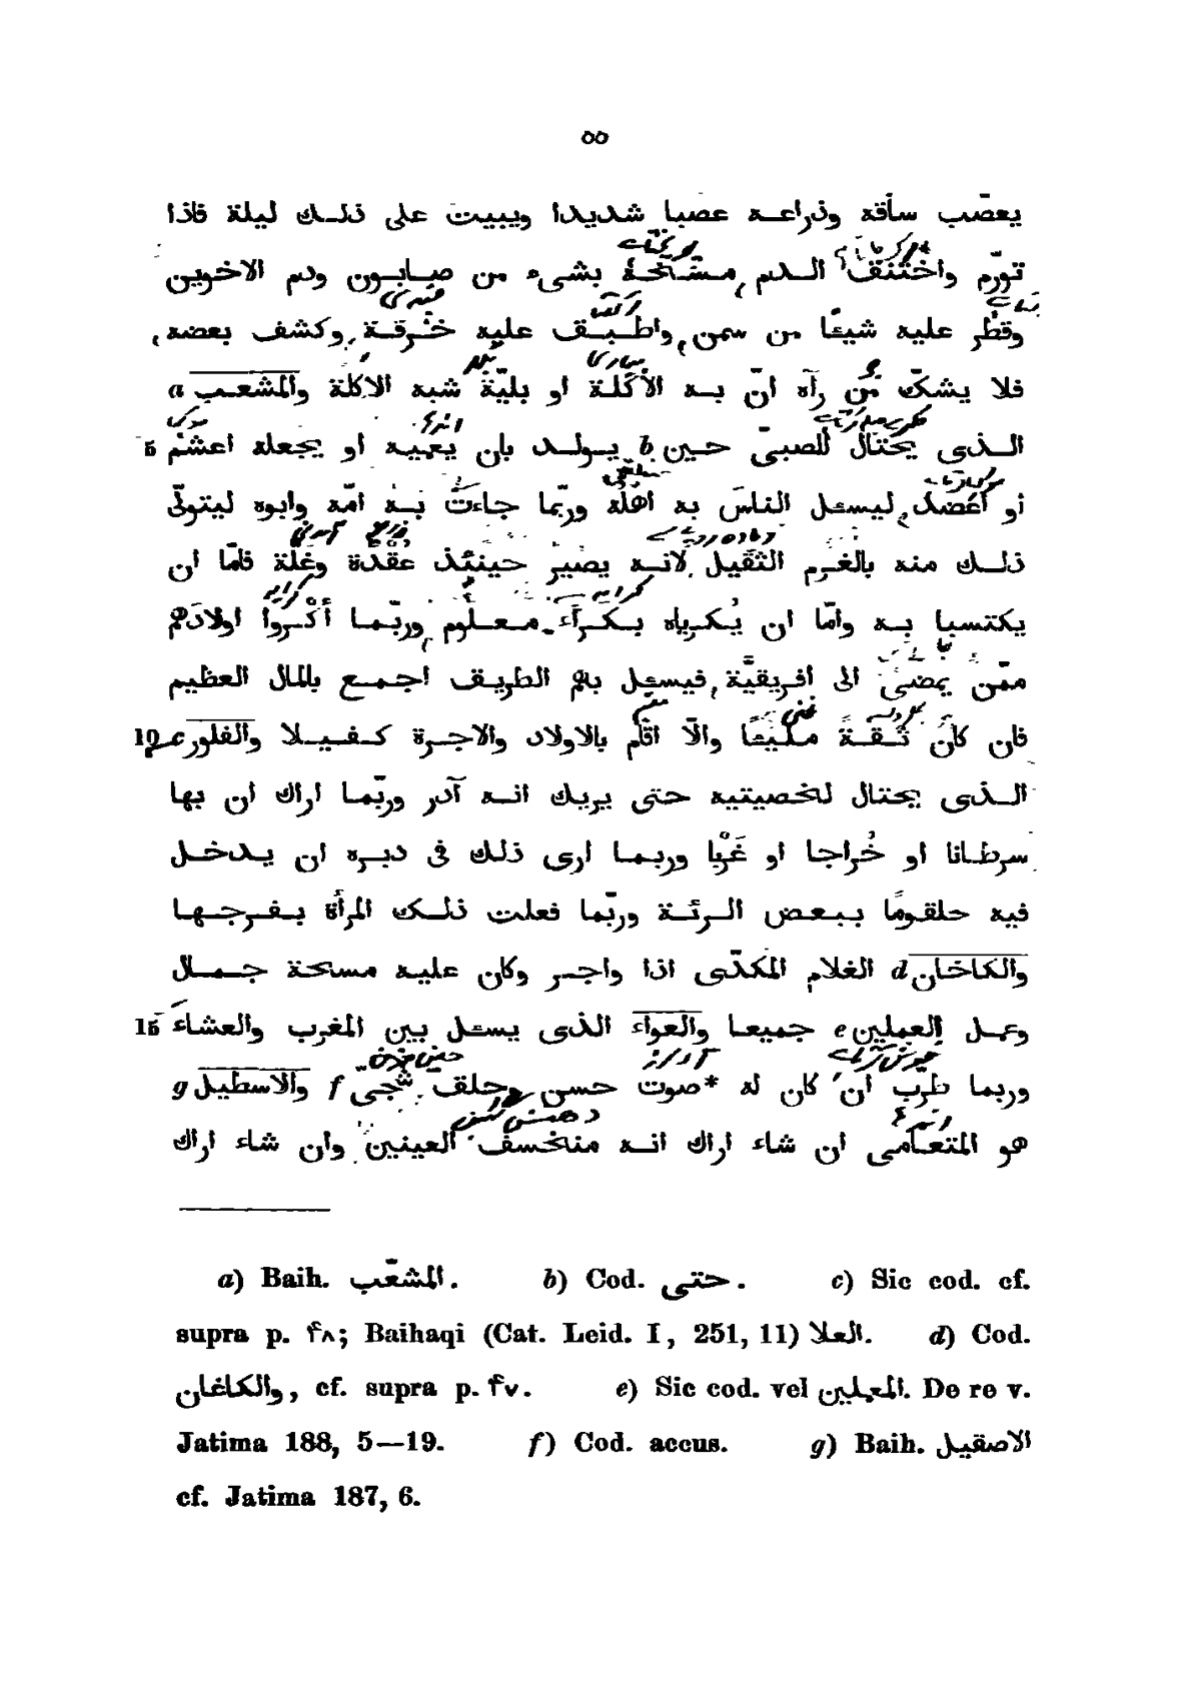 ٥٥
يعصّب ساقه وذراعـه عصبا شديدا ويبيت على ذلـك ليلة فاذا
تورّم واختنق الـدم مسّخـه بشىء من صـابـون ودم الاخوين
وقطّر عليه شيئًا من سمن واطـبـق عليه خـرقـة وكشف بعضه
فلا يشكّ من رآه انّ بـه الأكلـة او بليّة شبه الاكلة والمشعـب a
5 الـذى يحتال للصبىّ حـين b يـولـد بان يعميه او يجعله اعشم
او أعضد ليسـٔـل الناس به اهله وربّما جاءت بـه امّه وابوه ليتولّى
ذلـك منه بالغـرم الثقيل لانـه يصير حينئذ عقدة وغلة فامّا ان
يكتسبا بـه وامّا ان يُكـرياه بـكـرآء معـلـوم وربّـمـا أكـروا اولادهم
ممّن يمضى الى افـريقيّة فيسـٔـل بهم الطريـف اجـمـع بالمال العظيم
10 فان كان ثـقـةً مـليـئًا والّا اقام بالاولاد والاجـرة كـفـيـلا والفلور c
الـذى يحتال لخصيتيه حتى يريك انـه آدر وربّـمـا اراك ان بها
سرطـانا او خُراجا او غَرْبا وربـمـا ارى ذلك فى دبـره ان يـدخـل
فيه حلقـومًا بـبـعـض الـرئـة وربّما فعلت ذلـك المرأة بـفـرجـهـا
والكاخان d الغلام المكدّى اذا واجـر وكان عليه مسحة جـمـال
15 وعمـل العملين e جميعا والعواء الذى يسـٔـل بين المغرب والعشاء
وربما طرب ان كان له *صوت حسن وحلق شجى f والاسطيل g
هو المتعامى ان شاء اراك انـه منخسف العينين وان شاء اراك
a) Baih. المشعّب. b) Cod. حتى. c) Sic cod. cf.
supra p. ۴۸; Baihaqi (Cat. Leid. I, 251, 11) العلا. d) Cod.
والكاغان, cf. supra p. ۴۷. e) Sic cod. vel المعلين. De re v.
Jatima 188, 5—19. f) Cod. accus. g) Baih. الاصقيل
cf. Jatima 187, 6.